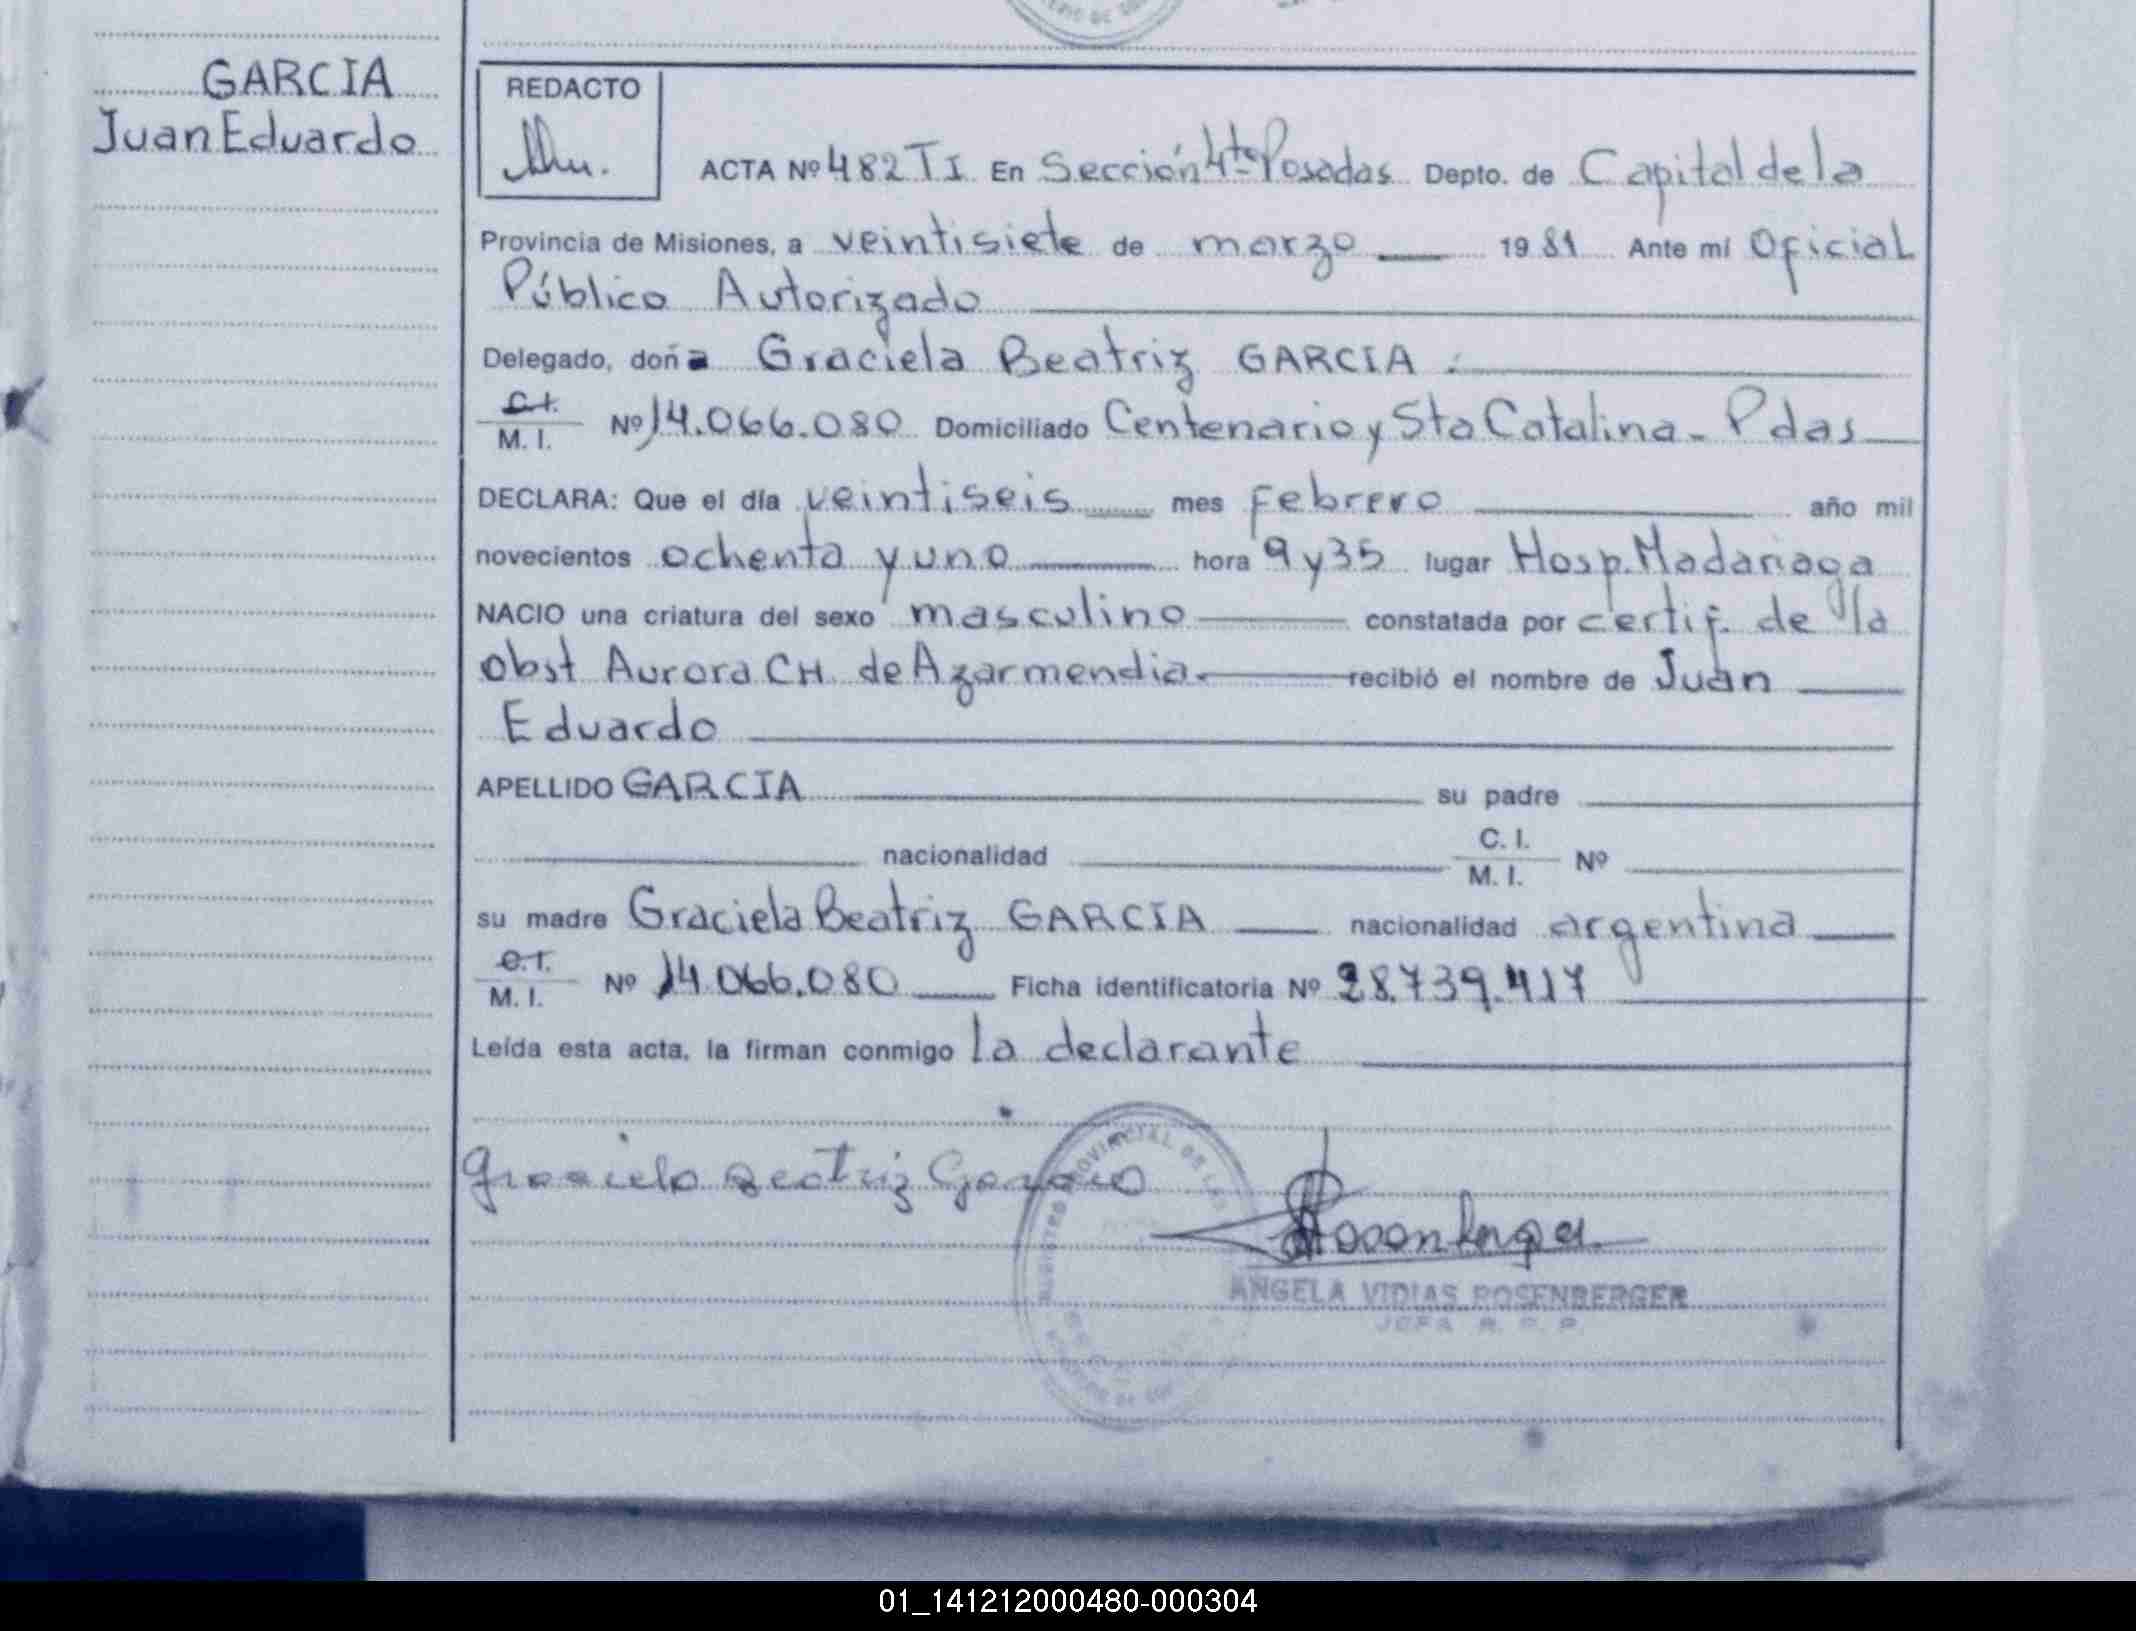 GARCIA
Juan Eduardo
REDACTO
ACTA Nº 482 TI En Sección 4ta Posadas Depto. de Capital de la
Provincia de Misiones, a veintisiete de marzo 1981 Ante mí Oficial
Público Autorizado
Delegado, doña Graciela Beatriz GARCIA
C.I.
M. I. Nº 14.066.080 Domiciliado Centenario y Sta Catalina - Pdas
DECLARA: Que el día veintiseis mes Febrero año mil
novecientos ochenta y uno hora 9 y 35 lugar Hosp. Madariaga
NACIO una criatura del sexo masculino constatada por certif. de la
obst Aurora CH de Azarmendia. recibió el nombre de Juan
Eduardo
APELLIDO GARCIA su padre
nacionalidad C. I. Nº
M. I.
su madre Graciela Beatriz GARCIA nacionalidad argentina
C.I.
M. I. Nº 14.066.080 Ficha identificatoria Nº 28.739.417
Leída esta acta, la firman conmigo la declarante
PROVINCIAL DE LAS
Graciela Beatriz Garcia
Rosenberger
ANGELA VIDIAS ROSENBERGER
JEFA R. P. P.
01_141212000480-000304